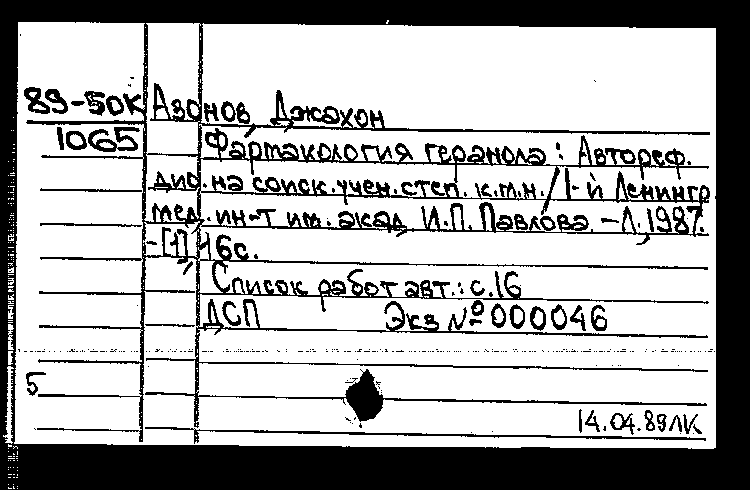 89-50к Азонов, Джахон
1065 Фармакология геранола : Автореф.
дис. на соиск. учен. степ. к.м.н. / 1-й Ленингр.
мед. ин-т им. акад. И.П. Павлова. - Л., 1987.
- [1], 16с.
Список работ авт.: с.16
ДСП Экз № 000046
5
14.04.89ЛК